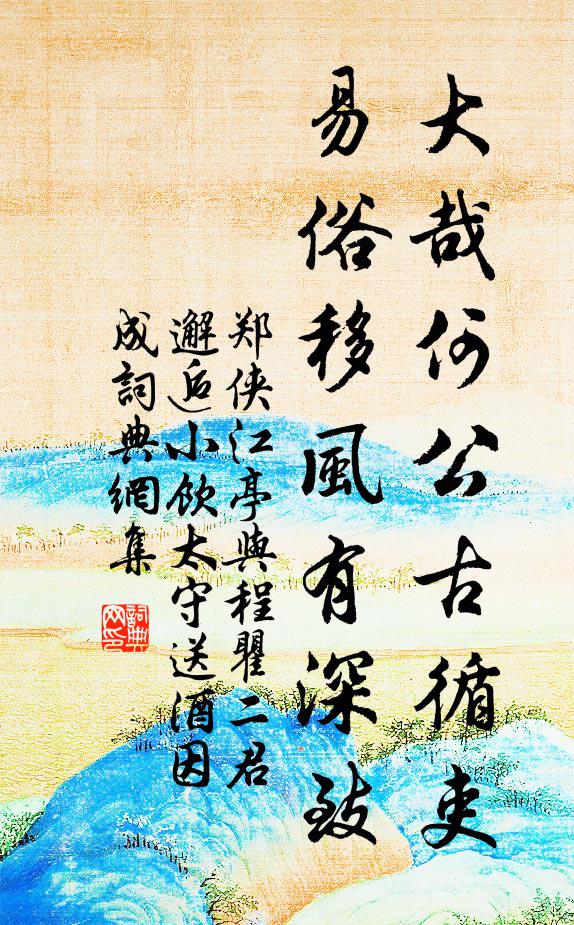 大哉何公古循吏
易俗移風有深致
郑侠江亭與程瞿二君
邂逅小飲太守送酒因
成詞典網集
詞典
网印